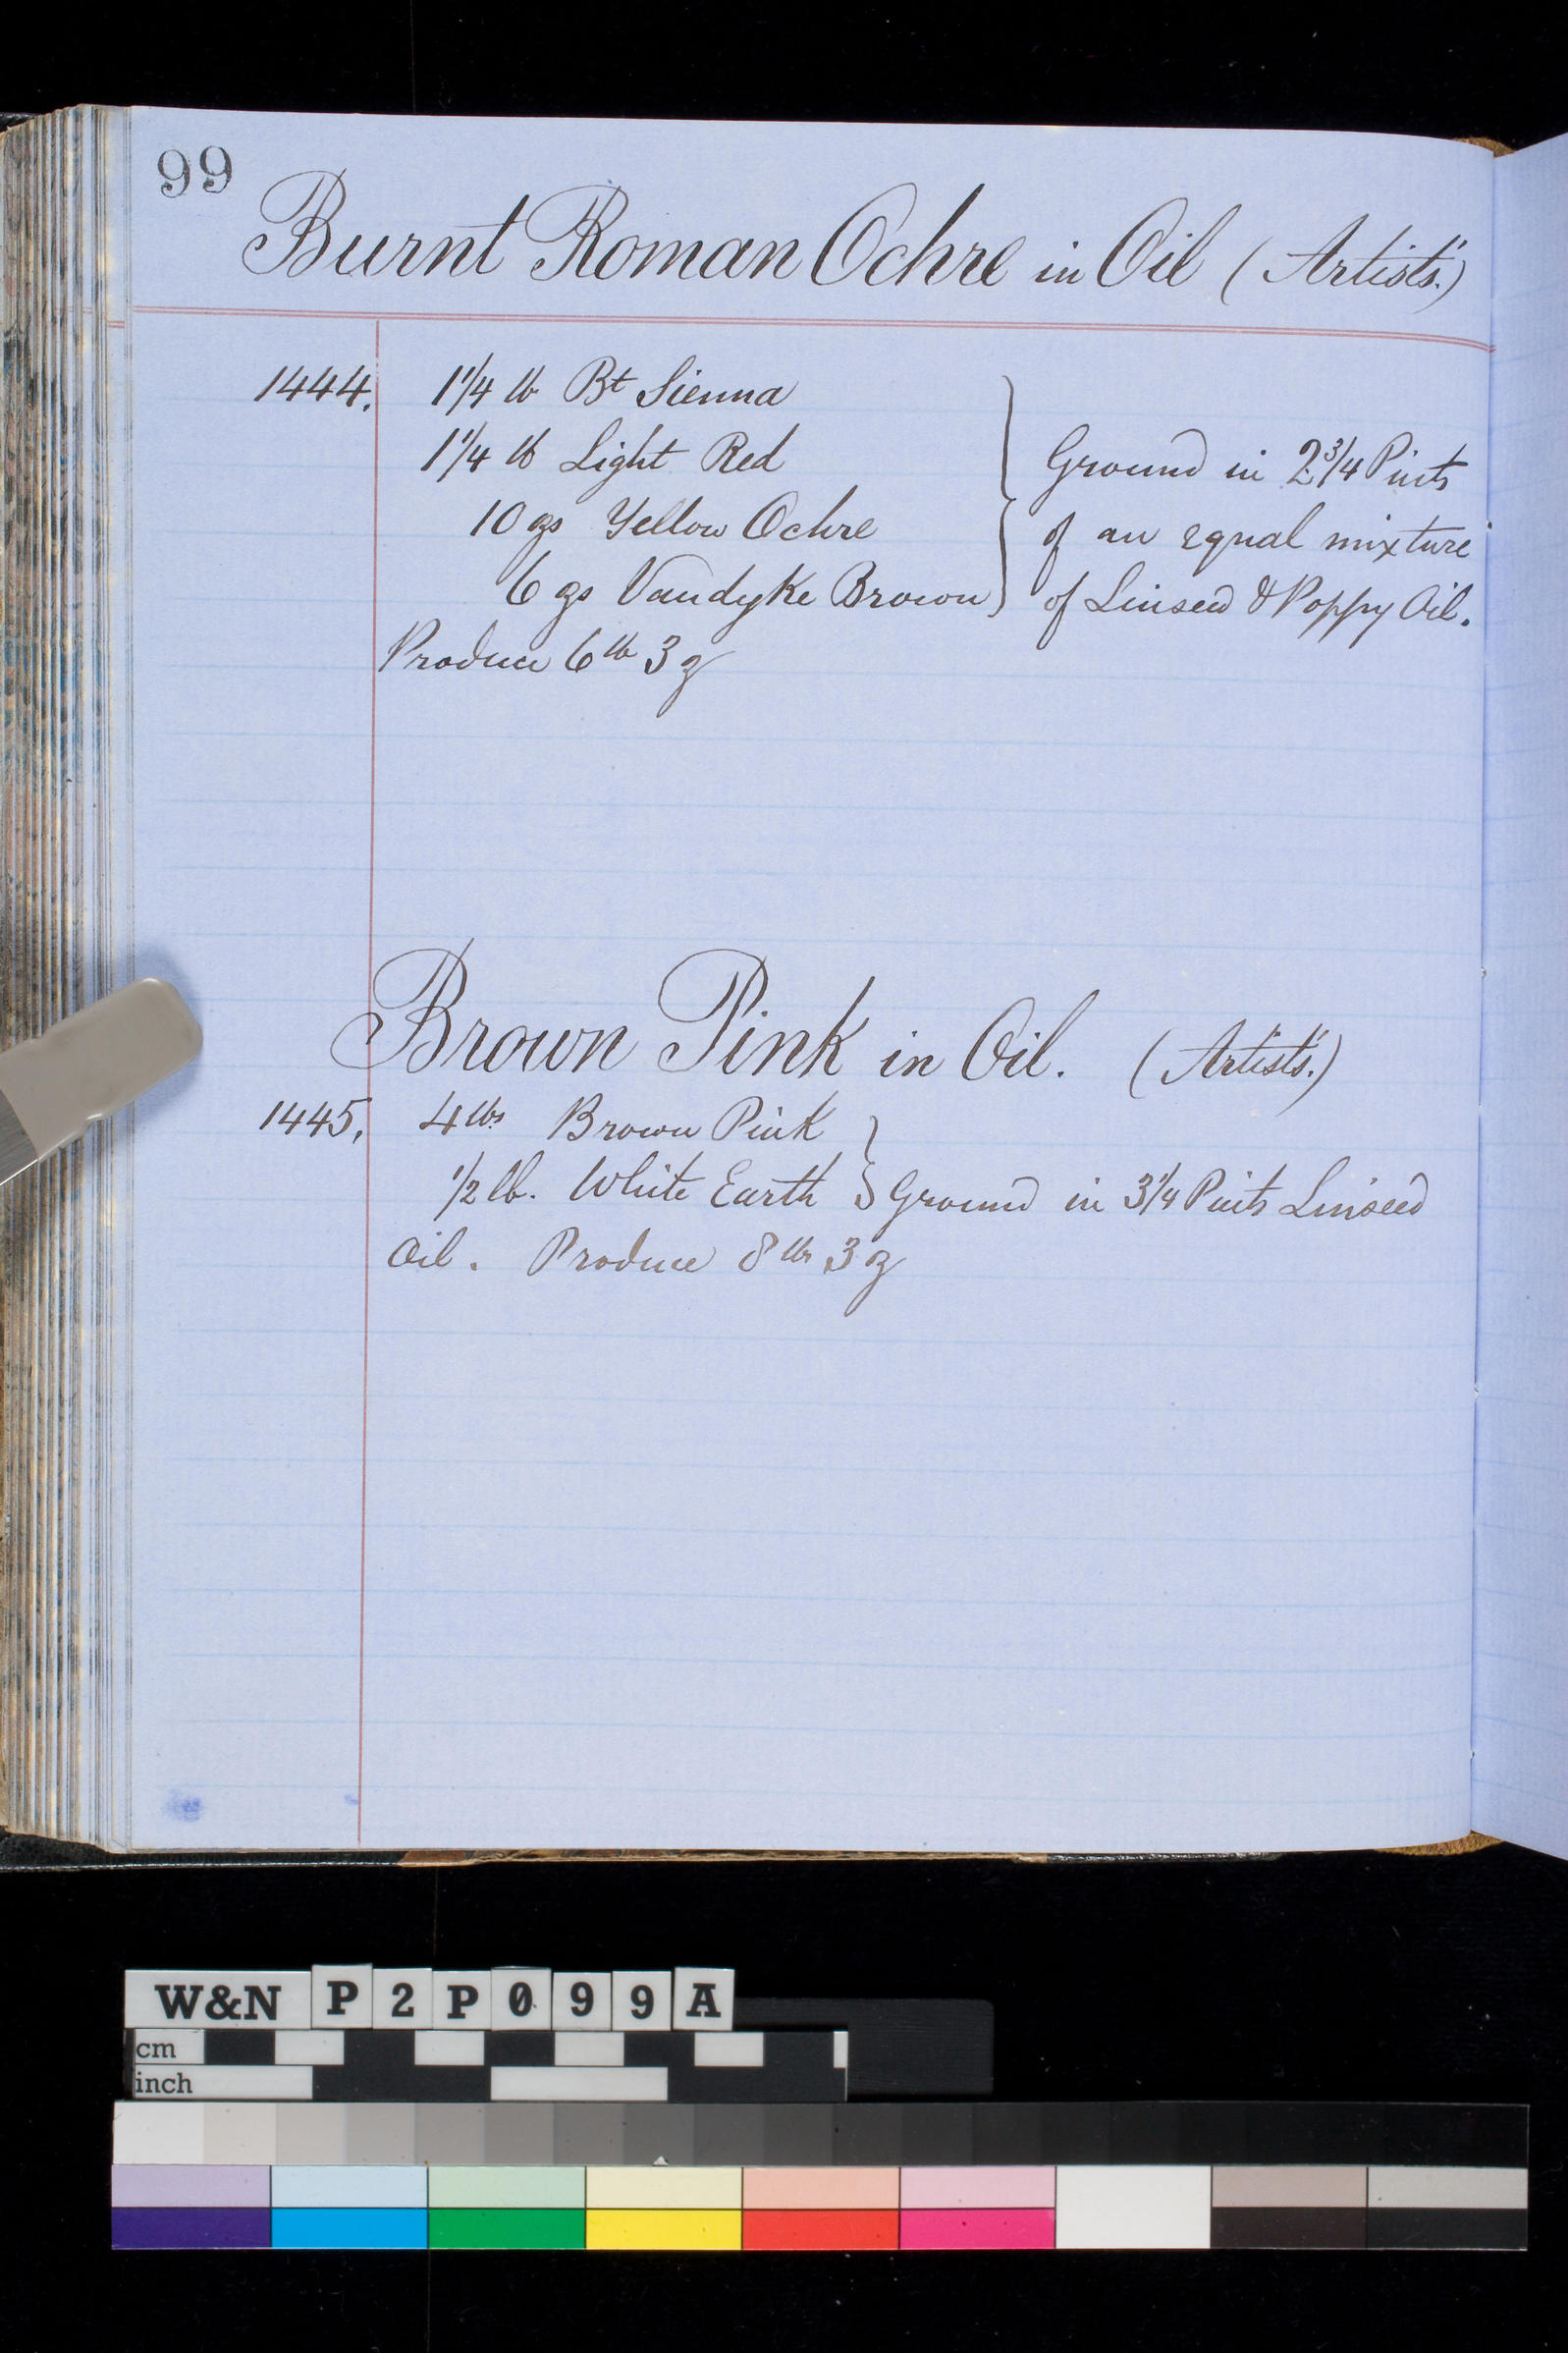 99
Burnt Roman Ochre in Oil (Artists'.)
1444. 1 1/4 lb Bt Sienna
1 1/4 lb Light Red
10 ozs Yellow Ochre
6 ozs Vandyke Brown
Ground in 2 3/4 Pints
of an equal mixture
of Linseed & Poppy Oil.
Produce 6 lb 3 oz
Brown Pink in Oil. (Artists'.)
1445. 4 lbs Brown Pink
1/2 lb. White Earth } Ground in 3 1/4 Pints Linseed
Oil. Produce 8 lbs 3 oz
W&N P2P099A
cm
inch